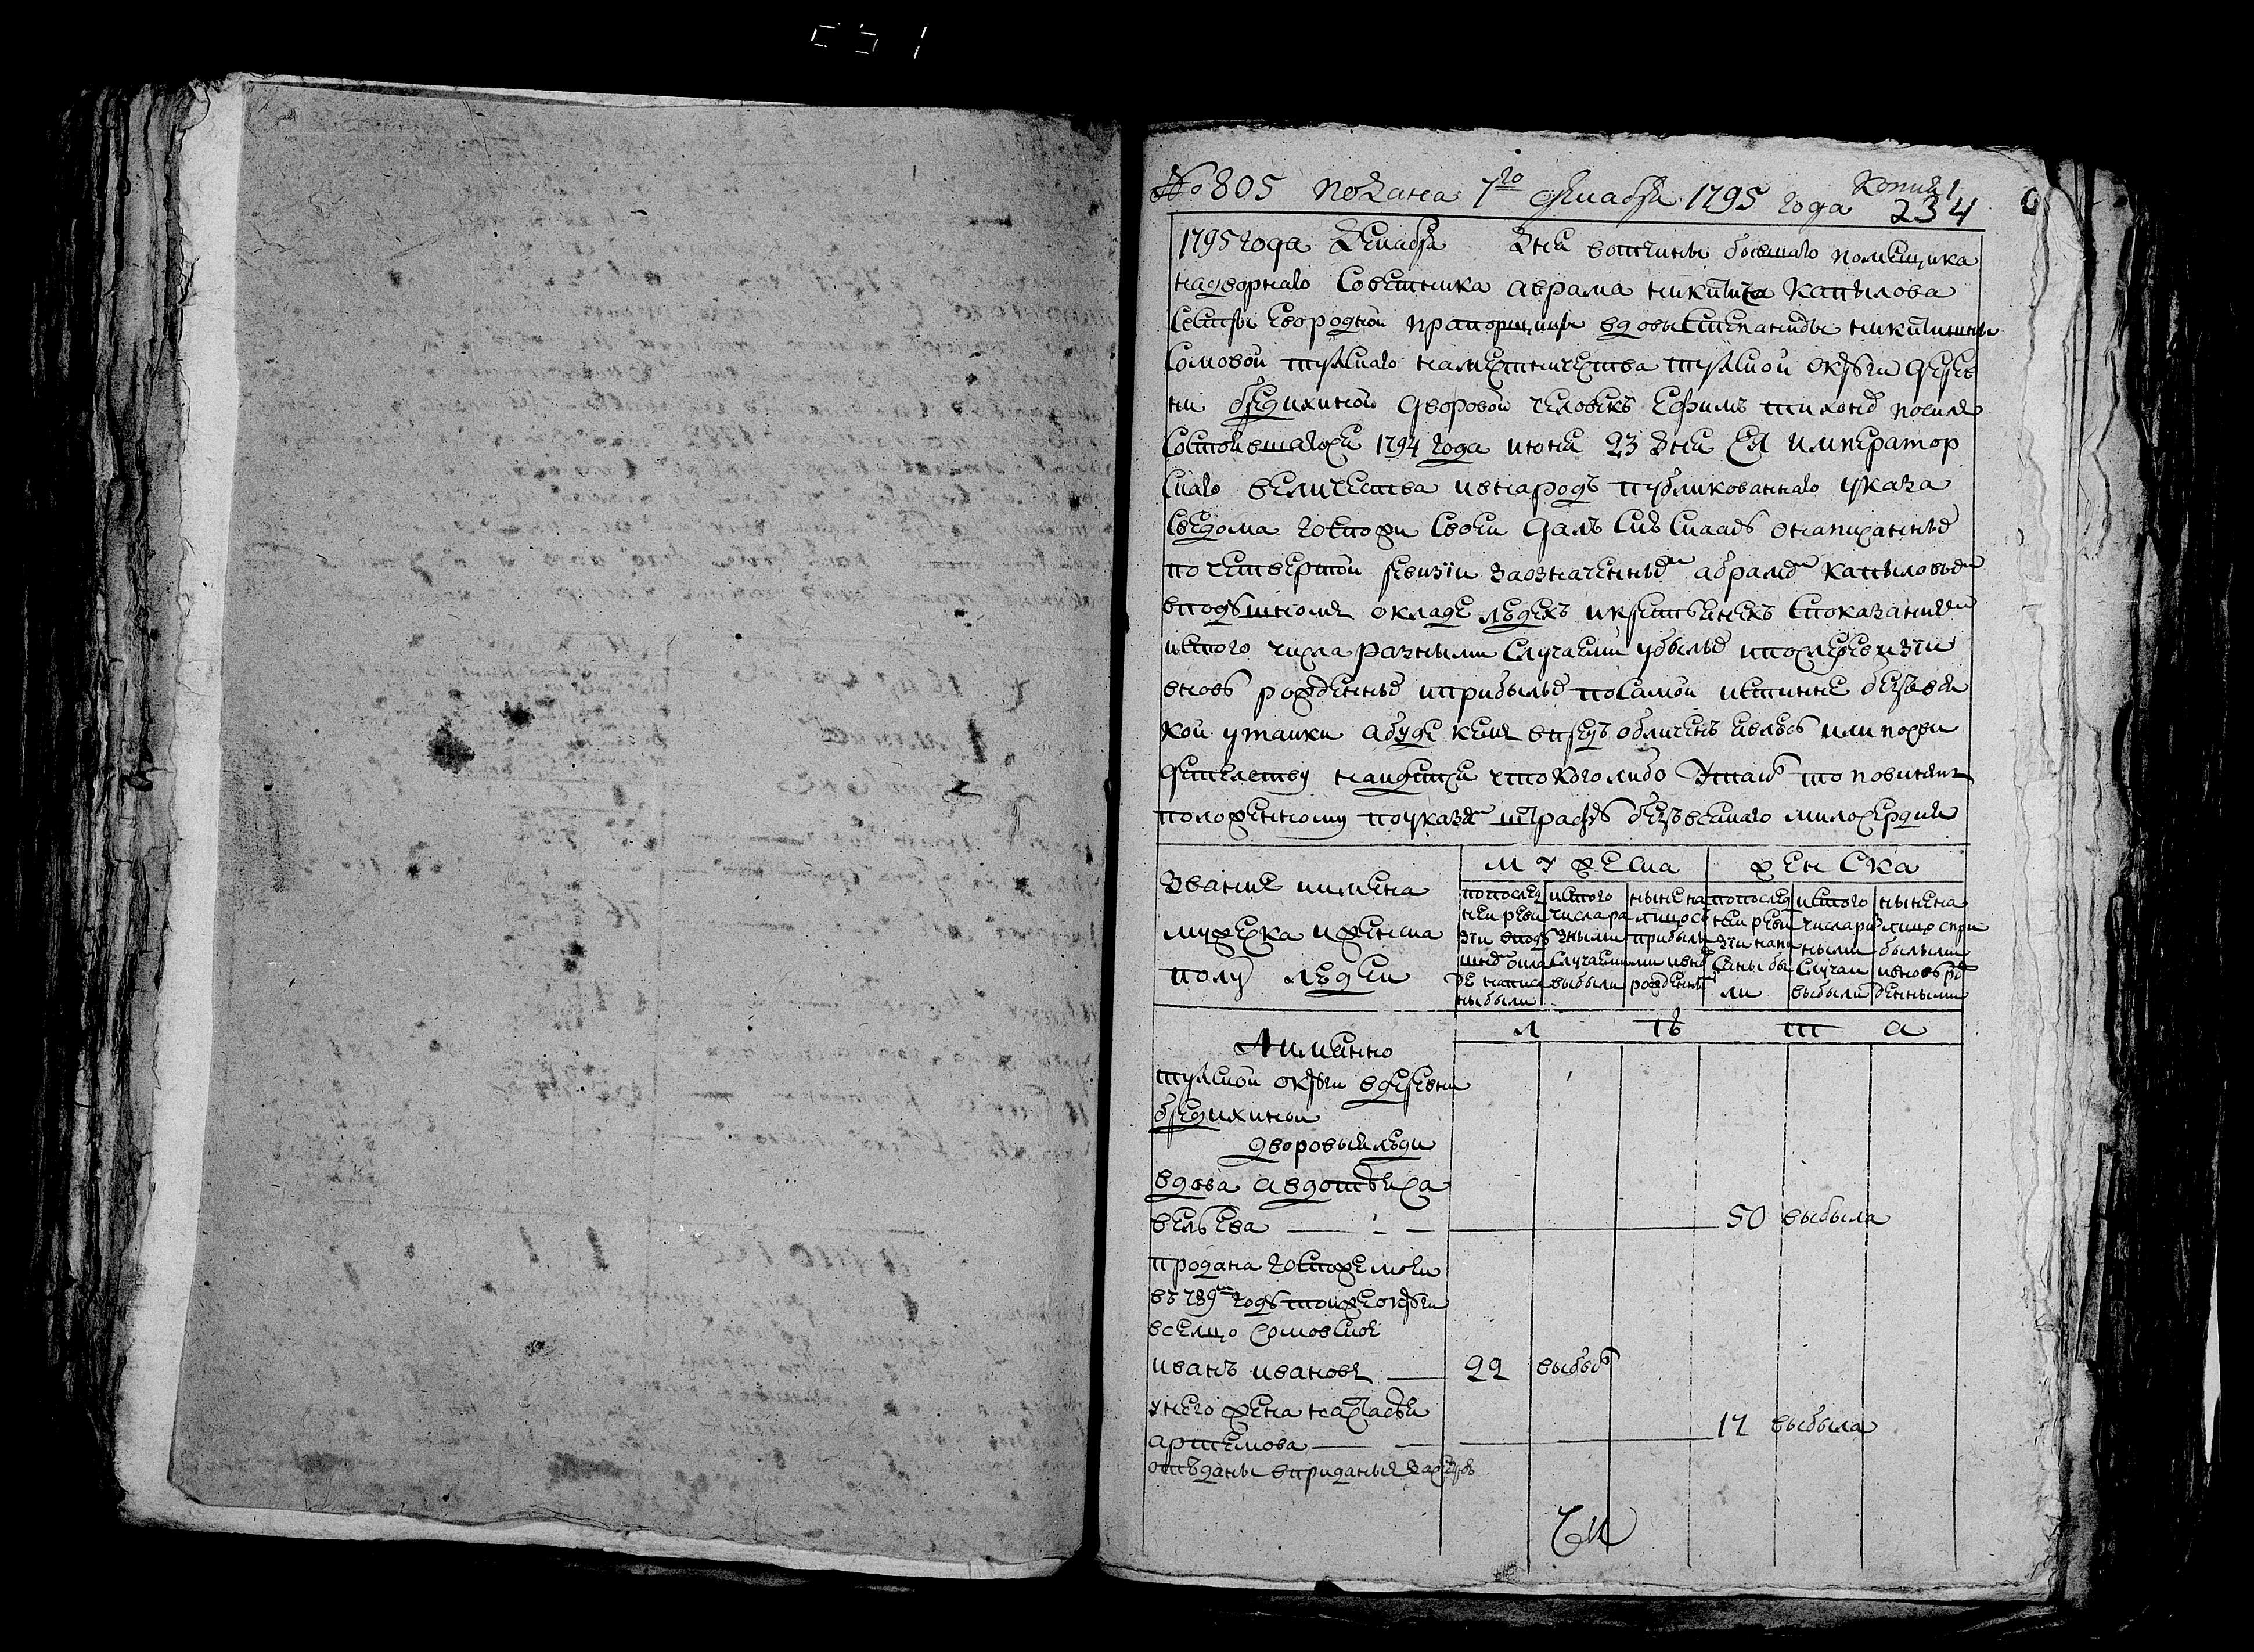 № 805 подана 7го декабря 1795 года Копия
234
1795 года декабря дня вотчины бывшаго помещика
надворнаго советника аврама никитича Капылова
сестры ево родной прапорщицы вдовы степаниды никитишны
Сомовой тулскаго наместничества тулской округи дерев
ни бредихиной дворовой человекъ ефимъ тихонов после
состоявшагося 1794 года июня 23 дня ея император
скаго величества и в народъ публикованнаго указа
с ведома госпожи своей далъ сию скаску о написанных
по четвертой ревизии за означенным абрамом капыловым
в подушном окладе людехъ и крестьянехъ с показанием
ис того числа разными случаями убылых и после ревизии
вновь рожденных и прибылых по самой истинне безо вся
кой утайки а буде кем впредь обличенъ явлюсь или по сви
детелству найдется что кого либо утаил то повинен
положенному по указам штрафу безо всякаго милосердия
Звание имена
мужеска и женска
полу людей
мужеска
женска
по послед
ней реви
зии в поду
шном окла
де написа
ны были
ис того
числа ра
зными
случаями
выбыли
ныне на
лицо с
прибылы
ми и вновь
рожденными
по послед
ней реви
зии напи
саны бы
ли
ис того
числа раз
ными
случаи
выбыли
ныне на
лицо с при
былыми
и вновь рож
денными
А имянно
лѣта
тулской округи в деревни
бредихиной
дворовыя люди
вдова авдотья са
вельева 50 выбыла
продана госпоже моей
въ 789м году той же округи
в селцо сомовское
иванъ ивановъ 22 выбыл
у него жена настасья
артемова 17 выбыла
отъданы в приданыя